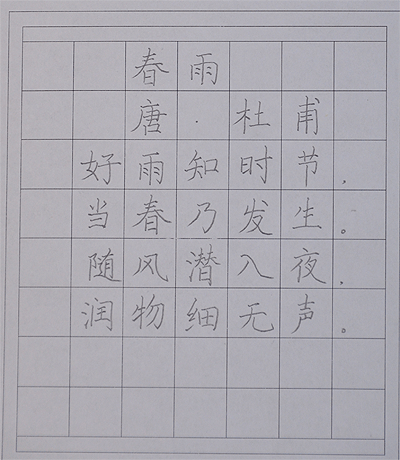 春雨
唐·杜甫
好雨知时节,
当春乃发生。
随风潜入夜,
润物细无声。